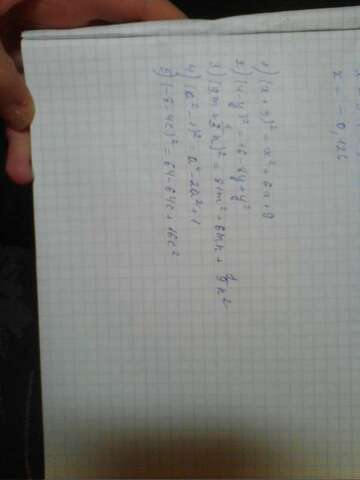 x = - 0,125
1) (x + 3)² = x² + 6x + 9
2) (4 - y)² = 16 - 8y + y²
3) (9m + 1/3 n)² = 81m² + 6mn + 1/9 n²
4) (a² - 1)² = a⁴ - 2a² + 1
5) (-8 - 4c)² = 64 - 64c + 16c²